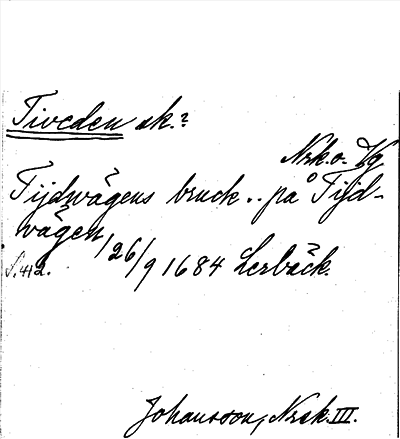 Tiveden sk.?
Nrk. o. Vg
Tijdwägens bruck .. på Tijd-
wägen /26/9 1684 Lerbäck.
S. 412.
Johansson, Nrsk. III.